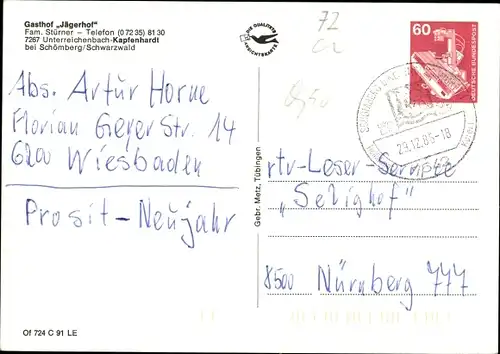 Gasthof „Jägerhof"
Fam. Stürner – Telefon (0 72 35) 81 30
7267 Unterreichenbach-Kapfenhardt
bei Schömberg/Schwarzwald
Abs. Artur Horne
Florian Geyer Str. 14
6200 Wiesbaden
Prosit-Neujahr
Of 724 C 91 LE
Gebr. Metz, Tübingen
DIE QUALITÄTS
ANSICHTSKARTE
72
60
DEUTSCHE BUNDESPOST
29.12.85-18
rtv-Leser-Service
"Selighof"
8500 Nürnberg 777